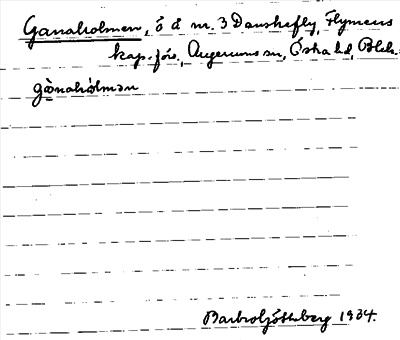 Ganaholmen, ö å nr. 3 Danskefly, Flymens
kap. förs., Augerums sn, Östra hd, Blek.
gànahòlmən
Barbro Göthberg 1934.